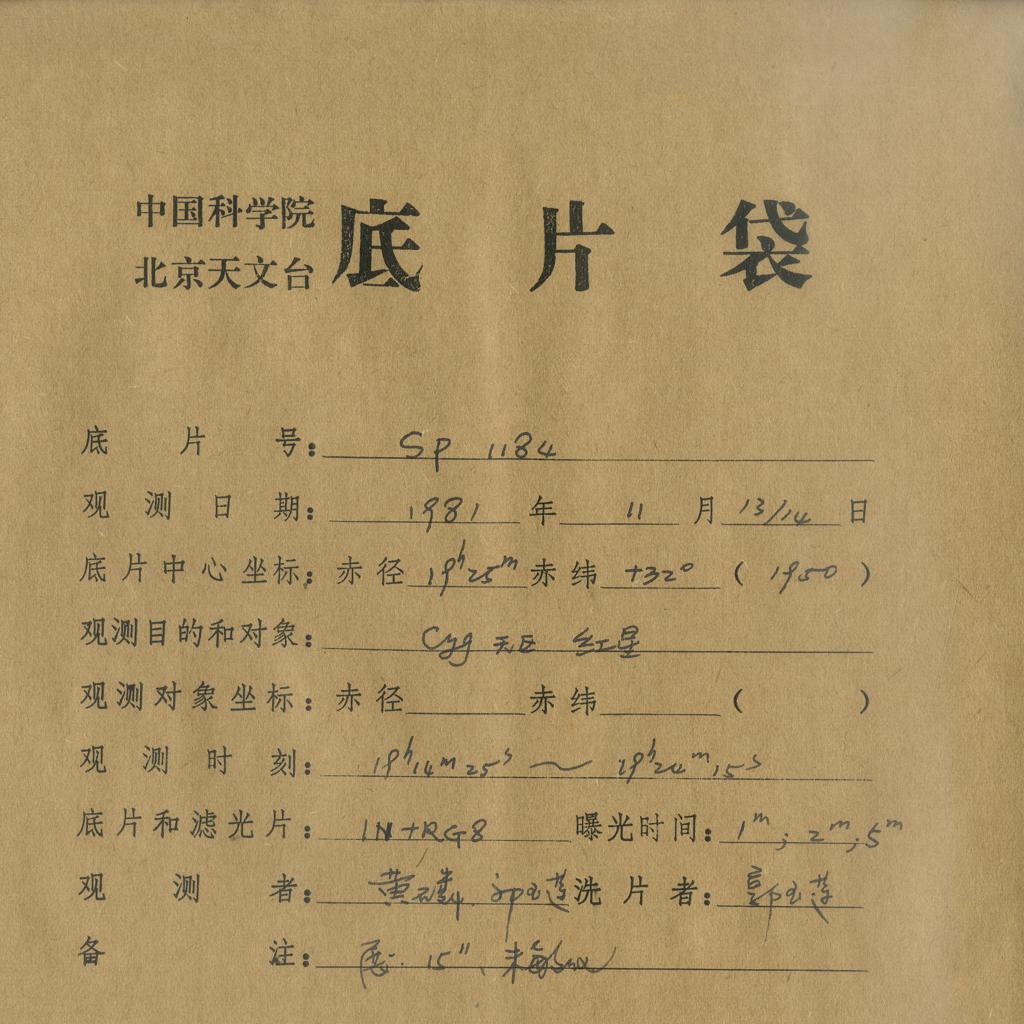 中国科学院
北京天文台
底片袋
底片号：Sp 1184
观测日期：1981年11月13/14日
底片中心坐标：赤径19ʰ25ᵐ赤纬+32°（1950）
观测目的和对象：Cyg 天区 红星
观测对象坐标：赤径 赤纬（ ）
观测时刻：19ʰ14ᵐ25ˢ～19ʰ24ᵐ15ˢ
底片和滤光片：IN+RG8 曝光时间：1ᵐ；2ᵐ；5ᵐ
观测者：黄磷.郭玉莲 洗片者：郭玉莲
备注：展. 15"、未敏